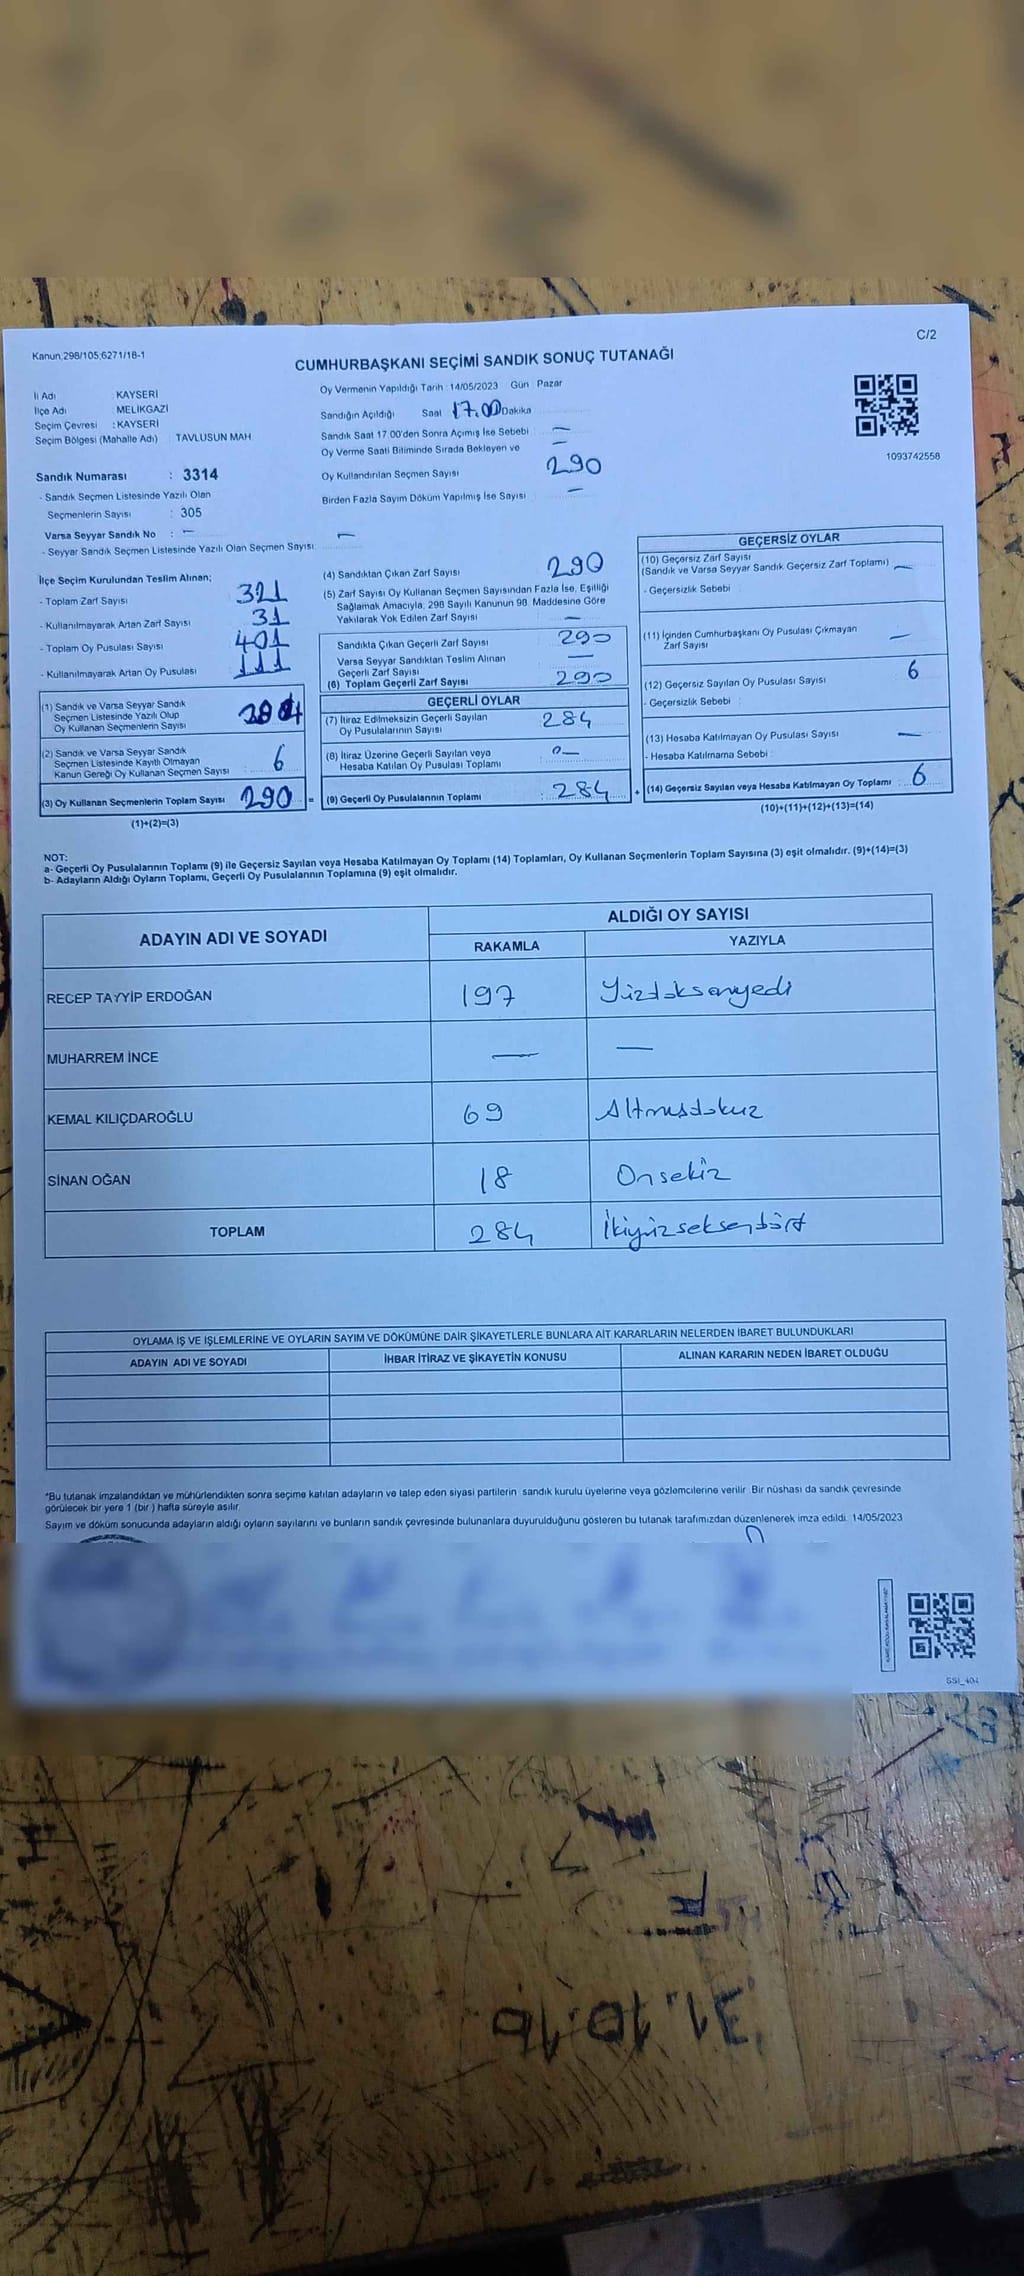 Kanun,298/105,6271/18-1
C/2
CUMHURBAŞKANI SEÇİMİ SANDIK SONUÇ TUTANAĞI
İl Adı : KAYSERİ
İlçe Adı : MELİKGAZİ
Seçim Çevresi : KAYSERİ
Seçim Bölgesi (Mahalle Adı) : TAVLUSUN MAH
Sandık Numarası : 3314
- Sandık Seçmen Listesinde Yazılı Olan
Seçmenlerin Sayısı : 305
Varsa Seyyar Sandık No : —
- Seyyar Sandık Seçmen Listesinde Yazılı Olan Seçmen Sayısı: —
Oy Vermenin Yapıldığı Tarih : 14/05/2023 Gün Pazar
Sandığın Açıldığı Saat 17.00 Dakika
Sandık Saat 17 00'den Sonra Açımış İse Sebebi : —
Oy Verme Saati Bitiminde Sırada Bekleyen ve —
Oy Kullandırılan Seçmen Sayısı 290
Birden Fazla Sayım Döküm Yapılmış İse Sayısı : —
1093742558
İlçe Seçim Kurulundan Teslim Alınan;
- Toplam Zarf Sayısı 321
- Kullanılmayarak Artan Zarf Sayısı 31
- Toplam Oy Pusulası Sayısı 401
- Kullanılmayarak Artan Oy Pusulası 111
(1) Sandık ve Varsa Seyyar Sandık
Seçmen Listesinde Yazılı Olup
Oy Kullanan Seçmenlerin Sayısı
(2) Sandık ve Varsa Seyyar Sandık
Seçmen Listesinde Kayıtlı Olmayan
Kanun Gereği Oy Kullanan Seçmen Sayısı : 6
(3) Oy Kullanan Seçmenlerin Toplam Sayısı 290 =
(1)+(2)=(3)
(4) Sandıktan Çıkan Zarf Sayısı 290
(5) Zarf Sayısı Oy Kullanan Seçmen Sayısından Fazla İse, Eşitliği
Sağlamak Amacıyla, 298 Sayılı Kanunun 98. Maddesine Göre
Yakılarak Yok Edilen Zarf Sayısı —
Sandıkta Çıkan Geçerli Zarf Sayısı : 290
Varsa Seyyar Sandıktan Teslim Alınan
Geçerli Zarf Sayısı —
(6) Toplam Geçerli Zarf Sayısı : 290
GEÇERLİ OYLAR
(7) İtiraz Edilmeksizin Geçerli Sayılan
Oy Pusulalarının Sayısı 284
(8) İtiraz Üzerine Geçerli Sayılan veya
Hesaba Katılan Oy Pusulası Toplamı
(9) Geçerli Oy Pusulalarının Toplamı : 284 +
GEÇERSİZ OYLAR
(10) Geçersiz Zarf Sayısı
(Sandık ve Varsa Seyyar Sandık Geçersiz Zarf Toplamı) —
- Geçersizlik Sebebi
(11) İçinden Cumhurbaşkanı Oy Pusulası Çıkmayan
Zarf Sayısı —
(12) Geçersiz Sayılan Oy Pusulası Sayısı 6
- Geçersizlik Sebebi :
(13) Hesaba Katılmayan Oy Pusulası Sayısı —
- Hesaba Katılmama Sebebi :
(14) Geçersiz Sayılan veya Hesaba Katılmayan Oy Toplamı : 6
(10)+(11)+(12)+(13)=(14)
NOT:
a- Geçerli Oy Pusulalarının Toplamı (9) ile Geçersiz Sayılan veya Hesaba Katılmayan Oy Toplamı (14) Toplamları, Oy Kullanan Seçmenlerin Toplam Sayısına (3) eşit olmalıdır. (9)+(14)=(3)
b- Adayların Aldığı Oyların Toplamı, Geçerli Oy Pusulalarının Toplamına (9) eşit olmalıdır.
ADAYIN ADI VE SOYADI ALDIĞI OY SAYISI
RAKAMLA YAZIYLA
RECEP TAYYİP ERDOĞAN 197 Yüzdoksanyedi
MUHARREM İNCE — —
KEMAL KILIÇDAROĞLU 69 Altmışdokuz
SİNAN OĞAN 18 Onsekiz
TOPLAM 284 İkiyüzseksendört
OYLAMA İŞ VE İŞLEMLERİNE VE OYLARIN SAYIM VE DÖKÜMÜNE DAİR ŞİKAYETLERLE BUNLARA AİT KARARLARIN NELERDEN İBARET BULUNDUKLARI
ADAYIN ADI VE SOYADI İHBAR İTİRAZ VE ŞİKAYETİN KONUSU ALINAN KARARIN NEDEN İBARET OLDUĞU
*Bu tutanak imzalandıktan ve mühürlendikten sonra seçime katılan adayların ve talep eden siyasi partilerin sandık kurulu üyelerine veya gözlemcilerine verilir Bir nüshası da sandık çevresinde
görülecek bir yere 1 (bir ) hafta süreyle asılır
Sayım ve döküm sonucunda adayların aldığı oyların sayılarını ve bunların sandık çevresinde bulunanlara duyurulduğunu gösteren bu tutanak tarafımızdan düzenlenerek imza edildi. 14/05/2023
31.10.16